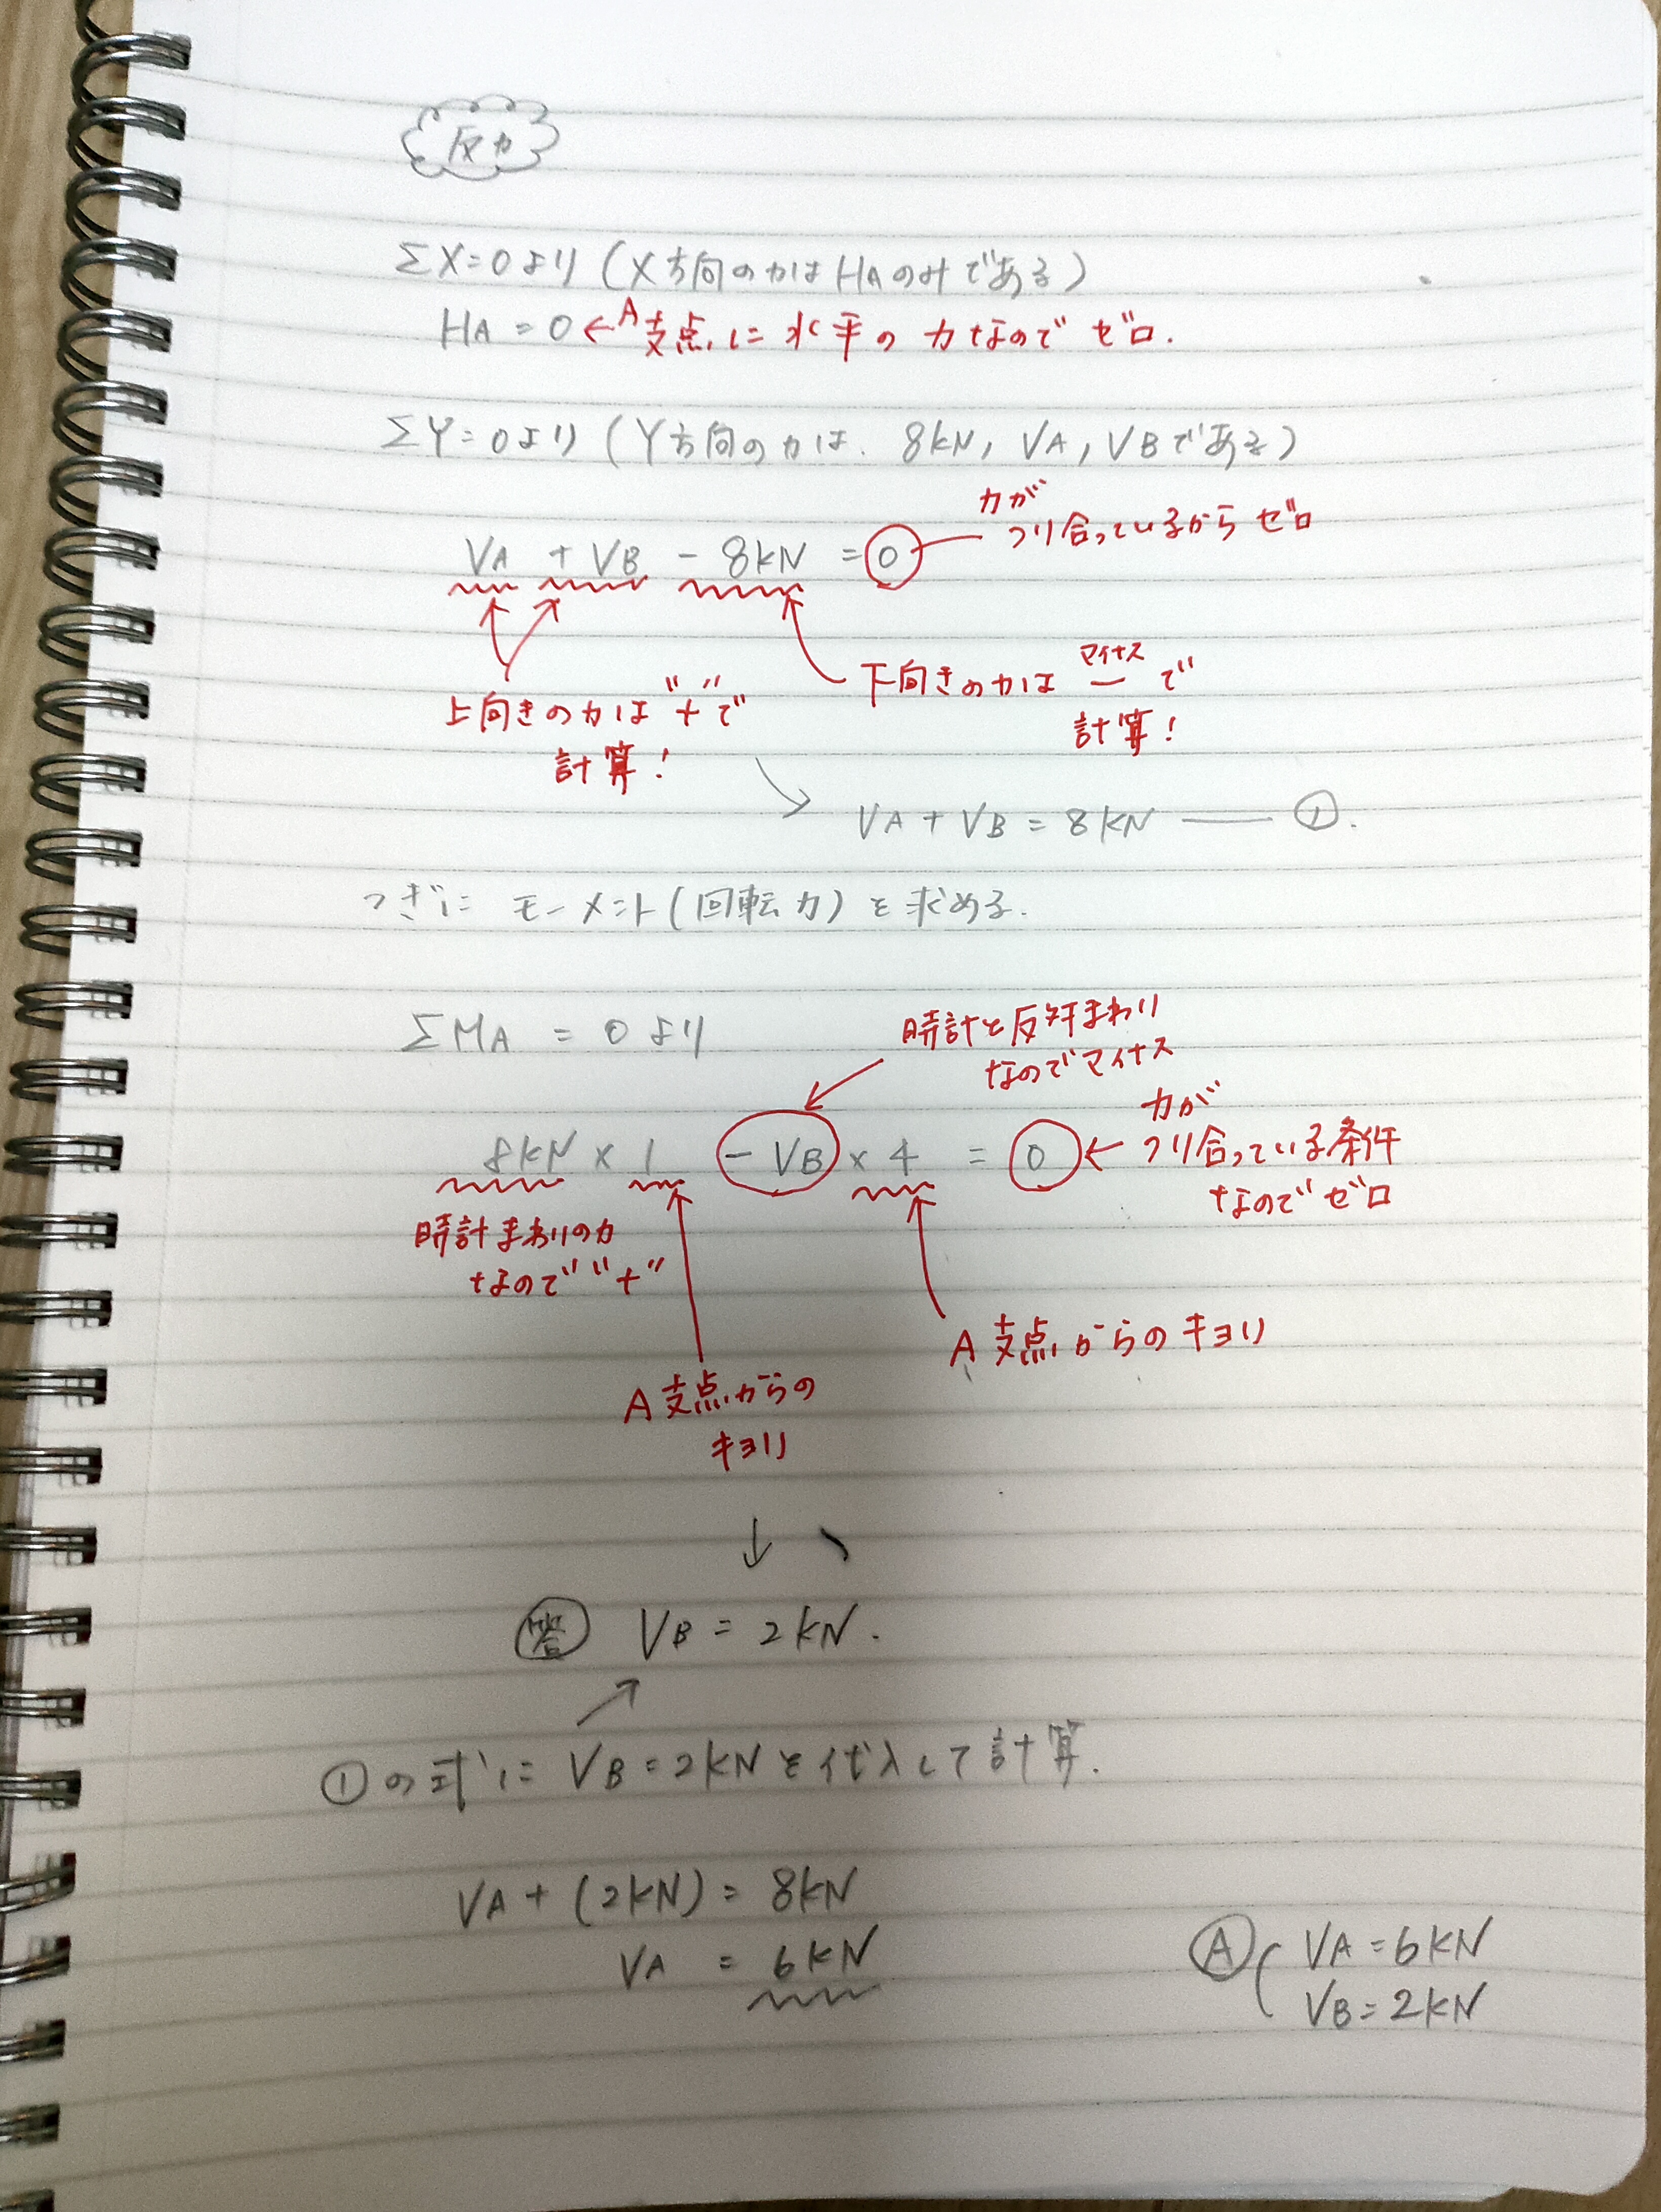 反力
ΣX=0より(X方向の力はHAのみである)
HA=0←A支点に水平の力なのでゼロ.
ΣY=0より(Y方向の力は、8kN, VA, VBである)
力が
つり合っているからゼロ
VA + VB - 8kN = 0
上向きの力は"+"で
計算!
マイナス
下向きの力は ー で
計算!
VA + VB = 8kN ―― ①.
つぎに モーメント(回転力)を求める.
ΣMA = 0 より
時計と反対まわり
なのでマイナス
8kN × 1 - VB × 4 = 0
力が
←つり合っている条件
なのでゼロ
時計まわりの力
なので"+"
A支点からのキョリ
A支点からの
キョリ
↓
答 VB = 2kN.
①の式に VB=2kNを代入して計算.
VA + (2kN) = 8kN
VA = 6kN
A ( VA = 6kN
VB = 2kN